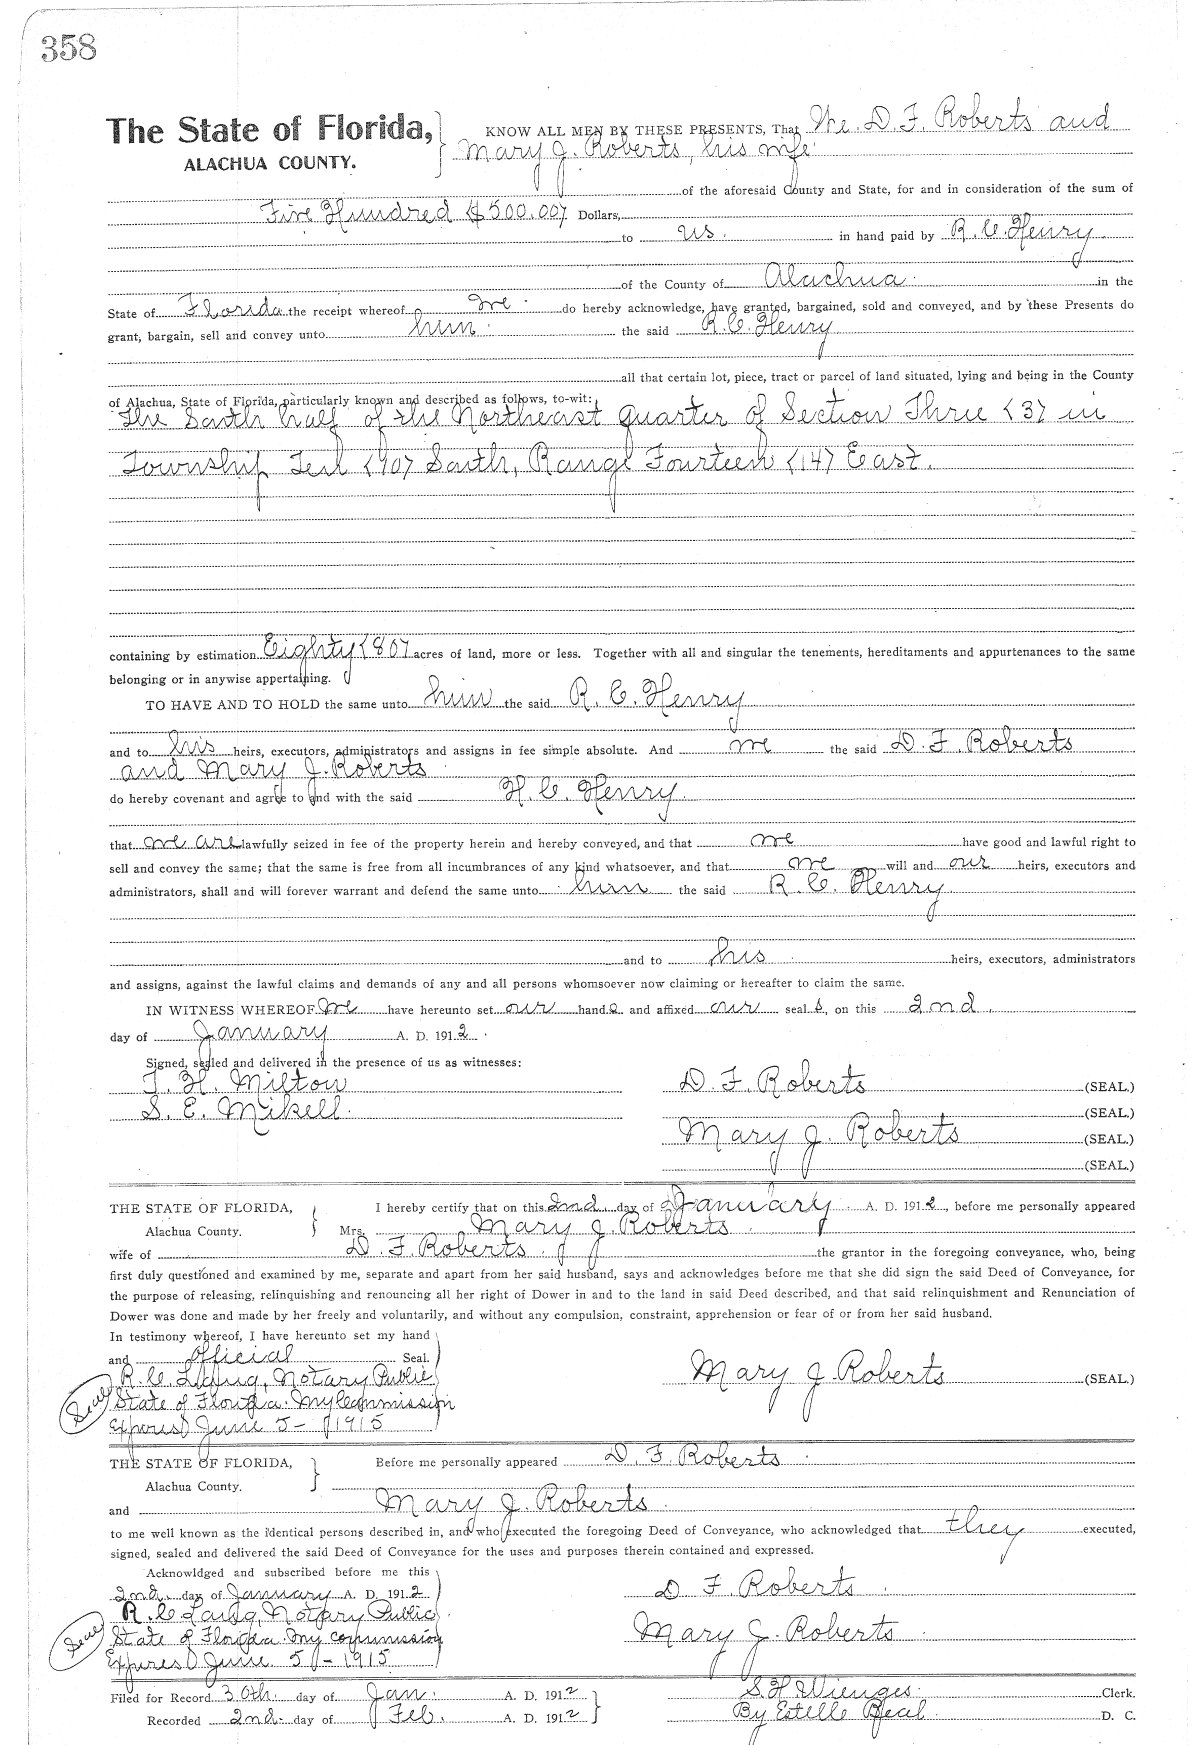 358
The State of Florida, KNOW ALL MEN BY THESE PRESENTS, That We D. F. Roberts and
ALACHUA COUNTY. Mary J. Roberts, his wife
of the aforesaid County and State, for and in consideration of the sum of
Five Hundred ($500.00) Dollars,
to us in hand paid by R. C. Henry
of the County of Alachua in the
State of Florida the receipt whereof we do hereby acknowledge, have granted, bargained, sold and conveyed, and by these Presents do
grant, bargain, sell and convey unto him the said R. C. Henry
all that certain lot, piece, tract or parcel of land situated, lying and being in the County
of Alachua, State of Florida, particularly known and described as follows, to-wit:
The South half of the Northeast quarter of Section Three (3) in
Township Ten (10) South, Range Fourteen (14) East.
containing by estimation Eighty (80) acres of land, more or less. Together with all and singular the tenements, hereditaments and appurtenances to the same
belonging or in anywise appertaining.
TO HAVE AND TO HOLD the same unto him the said R. C. Henry
and to his heirs, executors, administrators and assigns in fee simple absolute. And we the said D. F. Roberts
and Mary J. Roberts
do hereby covenant and agree to and with the said H. C. Henry
that we are lawfully seized in fee of the property herein and hereby conveyed, and that we have good and lawful right to
sell and convey the same; that the same is free from all incumbrances of any kind whatsoever, and that we will and our heirs, executors and
administrators, shall and will forever warrant and defend the same unto him the said R. C. Henry
and to his heirs, executors, administrators
and assigns, against the lawful claims and demands of any and all persons whomsoever now claiming or hereafter to claim the same.
IN WITNESS WHEREOF we have hereunto set our hands and affixed our seal s, on this 2nd
day of January A. D. 1912
Signed, sealed and delivered in the presence of us as witnesses:
T. H. Milton D. F. Roberts (SEAL.)
S. E. Mikell (SEAL.)
Mary J. Roberts (SEAL.)
(SEAL.)
THE STATE OF FLORIDA, I hereby certify that on this 2nd day of January A. D. 1912, before me personally appeared
Alachua County. Mrs. Mary J. Roberts
wife of D. F. Roberts the grantor in the foregoing conveyance, who, being
first duly questioned and examined by me, separate and apart from her said husband, says and acknowledges before me that she did sign the said Deed of Conveyance, for
the purpose of releasing, relinquishing and renouncing all her right of Dower in and to the land in said Deed described, and that said relinquishment and Renunciation of
Dower was done and made by her freely and voluntarily, and without any compulsion, constraint, apprehension or fear of or from her said husband.
In testimony whereof, I have hereunto set my hand
and official Seal.
R. C. Notary Public Mary J. Roberts (SEAL.)
Seal State of Florida. My Commission
Expires June 5 - 1915
THE STATE OF FLORIDA, Before me personally appeared D. F. Roberts
Alachua County.
and Mary J. Roberts
to me well known as the identical persons described in, and who executed the foregoing Deed of Conveyance, who acknowledged that they executed,
signed, sealed and delivered the said Deed of Conveyance for the uses and purposes therein contained and expressed.
Acknowldged and subscribed before me this
2nd. day of January A. D. 1912 D F Roberts
R. C. Notary Public
Seal State of Florida. My commission Mary J. Roberts
Expires June 5 - 1915
Filed for Record 30th. day of Jan. A. D. 1912 S. H. Wienges Clerk.
Recorded 2nd. day of Feb. A. D. 1912 By Estelle D. C.